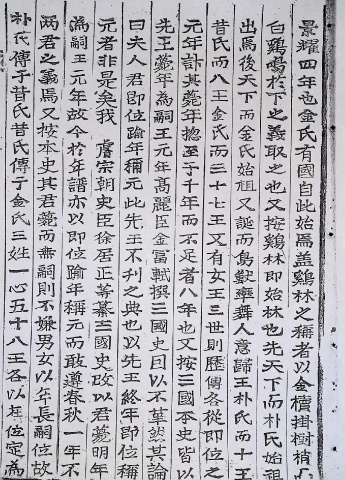 景耀四年也金氏有國自此始焉盖鷄林之稱者以金櫝掛樹梢而
白鷄鳴於下之義取之也又按鷄林即始林也先天下而朴氏始祖
出焉後天下而金氏始祖又誕而鳥獸率舞人意歸王朴氏而十王
昔氏而八王金氏而三十七王又有女王三世則歷傳各從即位之
元年計其薨年揔至于千年而不足者八年也又按三國本史皆以
先王薨年爲嗣王元年高麗臣金富軾撰三國史曰以不華然其論
曰夫人君即位踰年稱元此先王不刋之典也以先王終年即位稱
元者非是矣我 康宗朝史臣徐居正等纂三國史改以君薨明年
爲嗣王元年故今於年譜亦以即位踰年稱元而敢遵春秋一年不
兩君之義焉又按本史其君薨而無嗣則不嫌男女以年長嗣位故
朴氏傳子昔氏昔氏傳子金氏三姓一心五十八王各以年位定爲